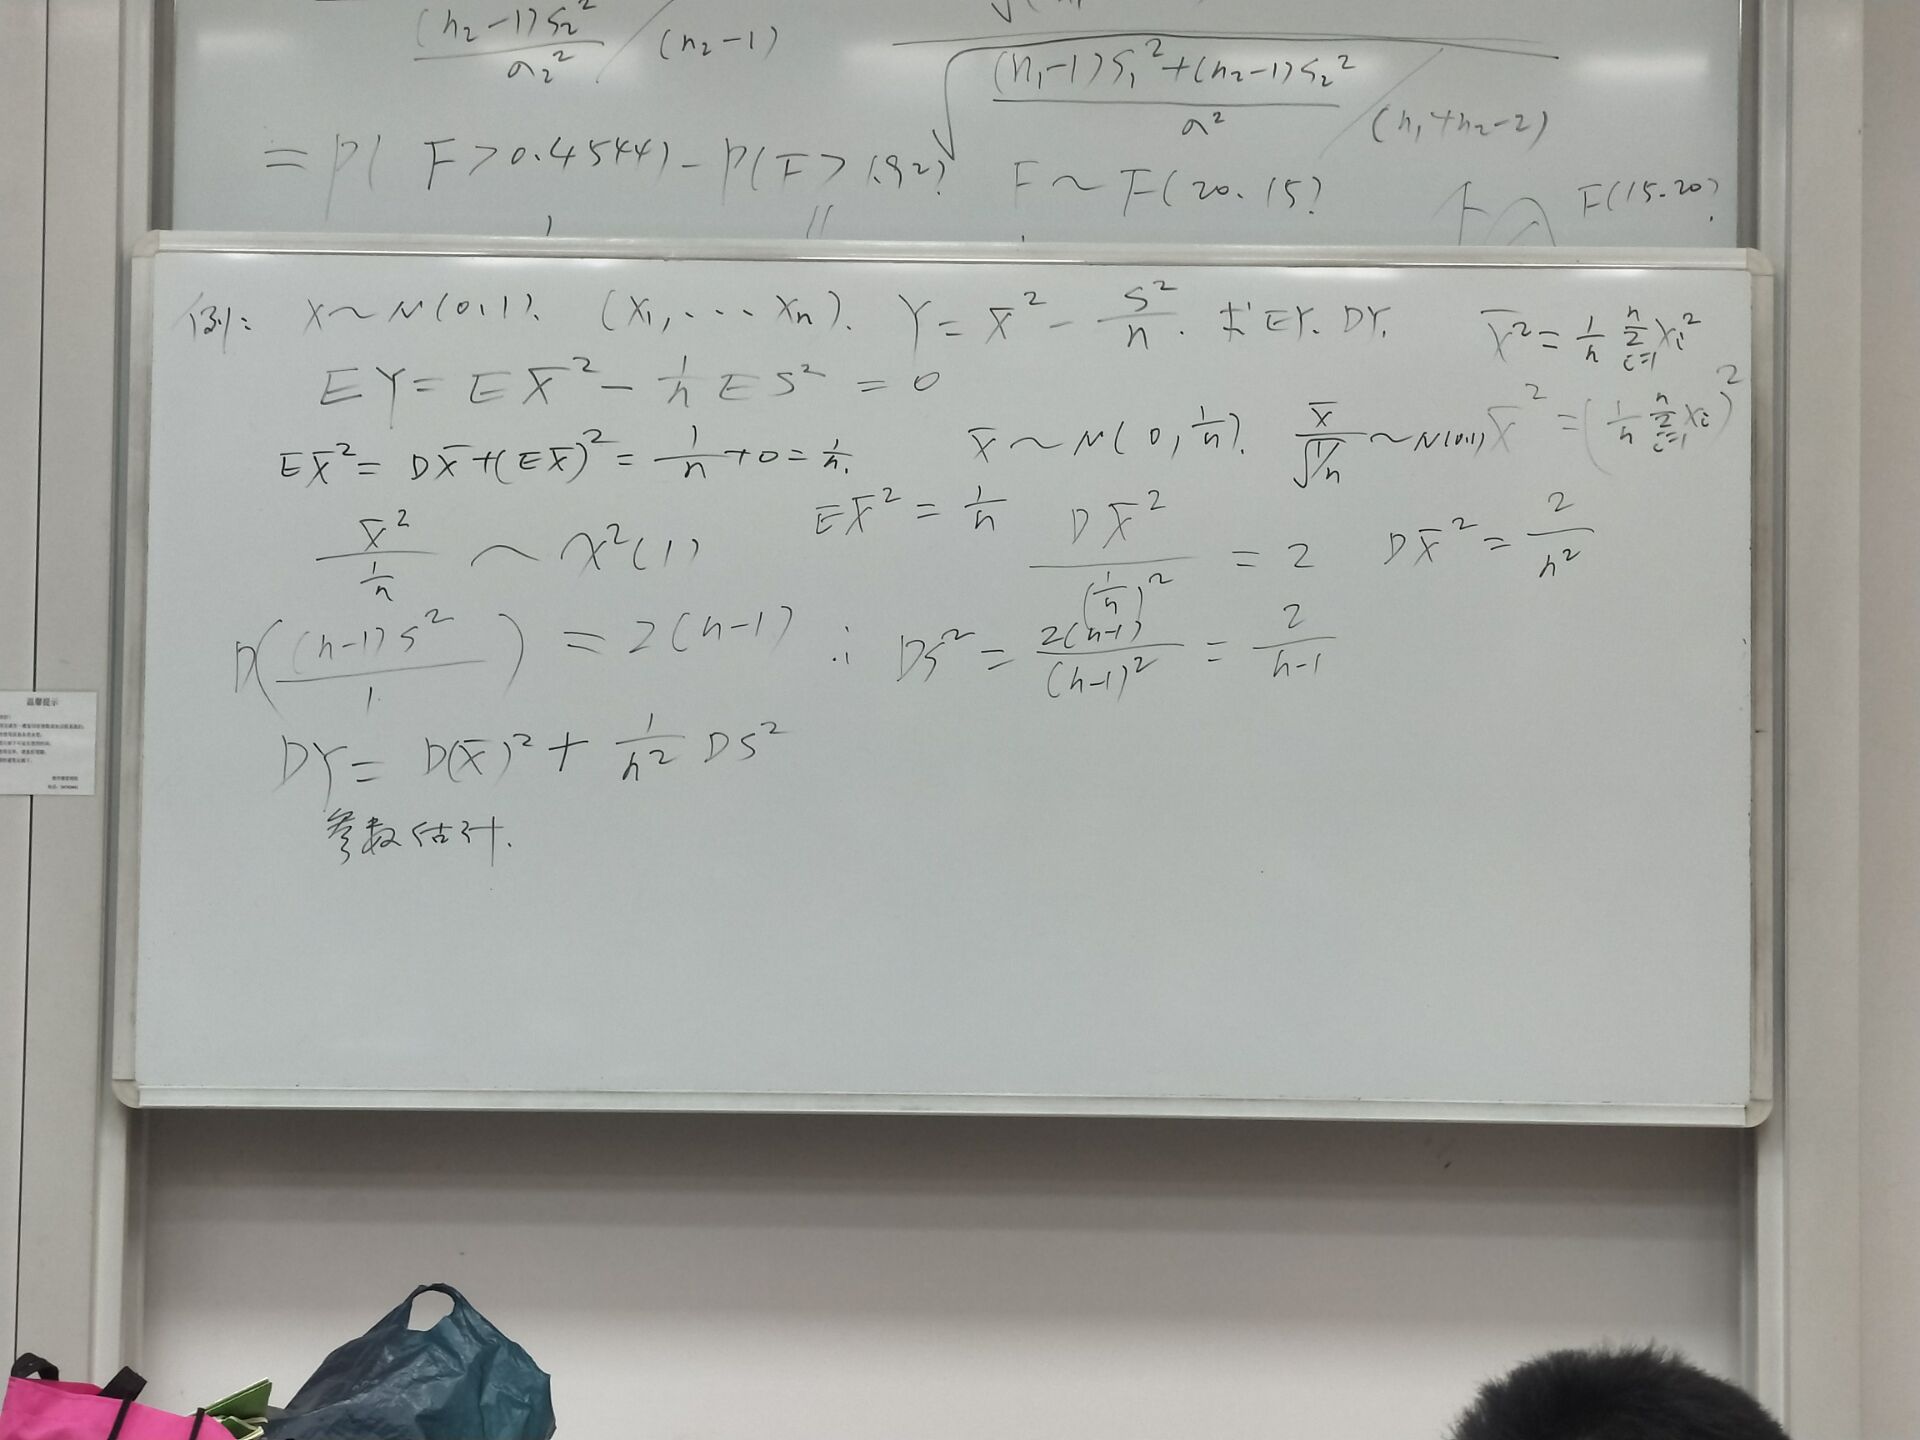 (n₂-1)S₂² / σ₂² / (n₂-1)
√ (n₁-1)S₁²+(n₂-1)S₂² / σ² / (n₁+n₂-2)
= P( F>0.4544) - P(F>1.92) F~F(20.15)
F(15.20)
例: X~N(0,1). (X₁,...Xn). Y= X̄² - S²/n. 求EY. DY.
X̄²= 1/n Σ(i=1,n) Xi²
EY= EX̄² - 1/n ES² = 0
X̄² = (1/n Σ(i=1,n) Xi)²
EX̄²= DX̄+(EX̄)²= 1/n +0= 1/n.
X̄~N(0, 1/n). X̄/√1/n ~N(0,1)
X̄² / (1/n) ~ χ²(1) EX̄² = 1/n DX̄² / (1/n)² = 2 DX̄² = 2/n²
D( (n-1)S² / 1 ) = 2(n-1) ∴ DS² = 2(n-1)/(n-1)² = 2/(n-1)
DY= D(X̄)² + 1/n² DS²
参数估计.
温馨提示